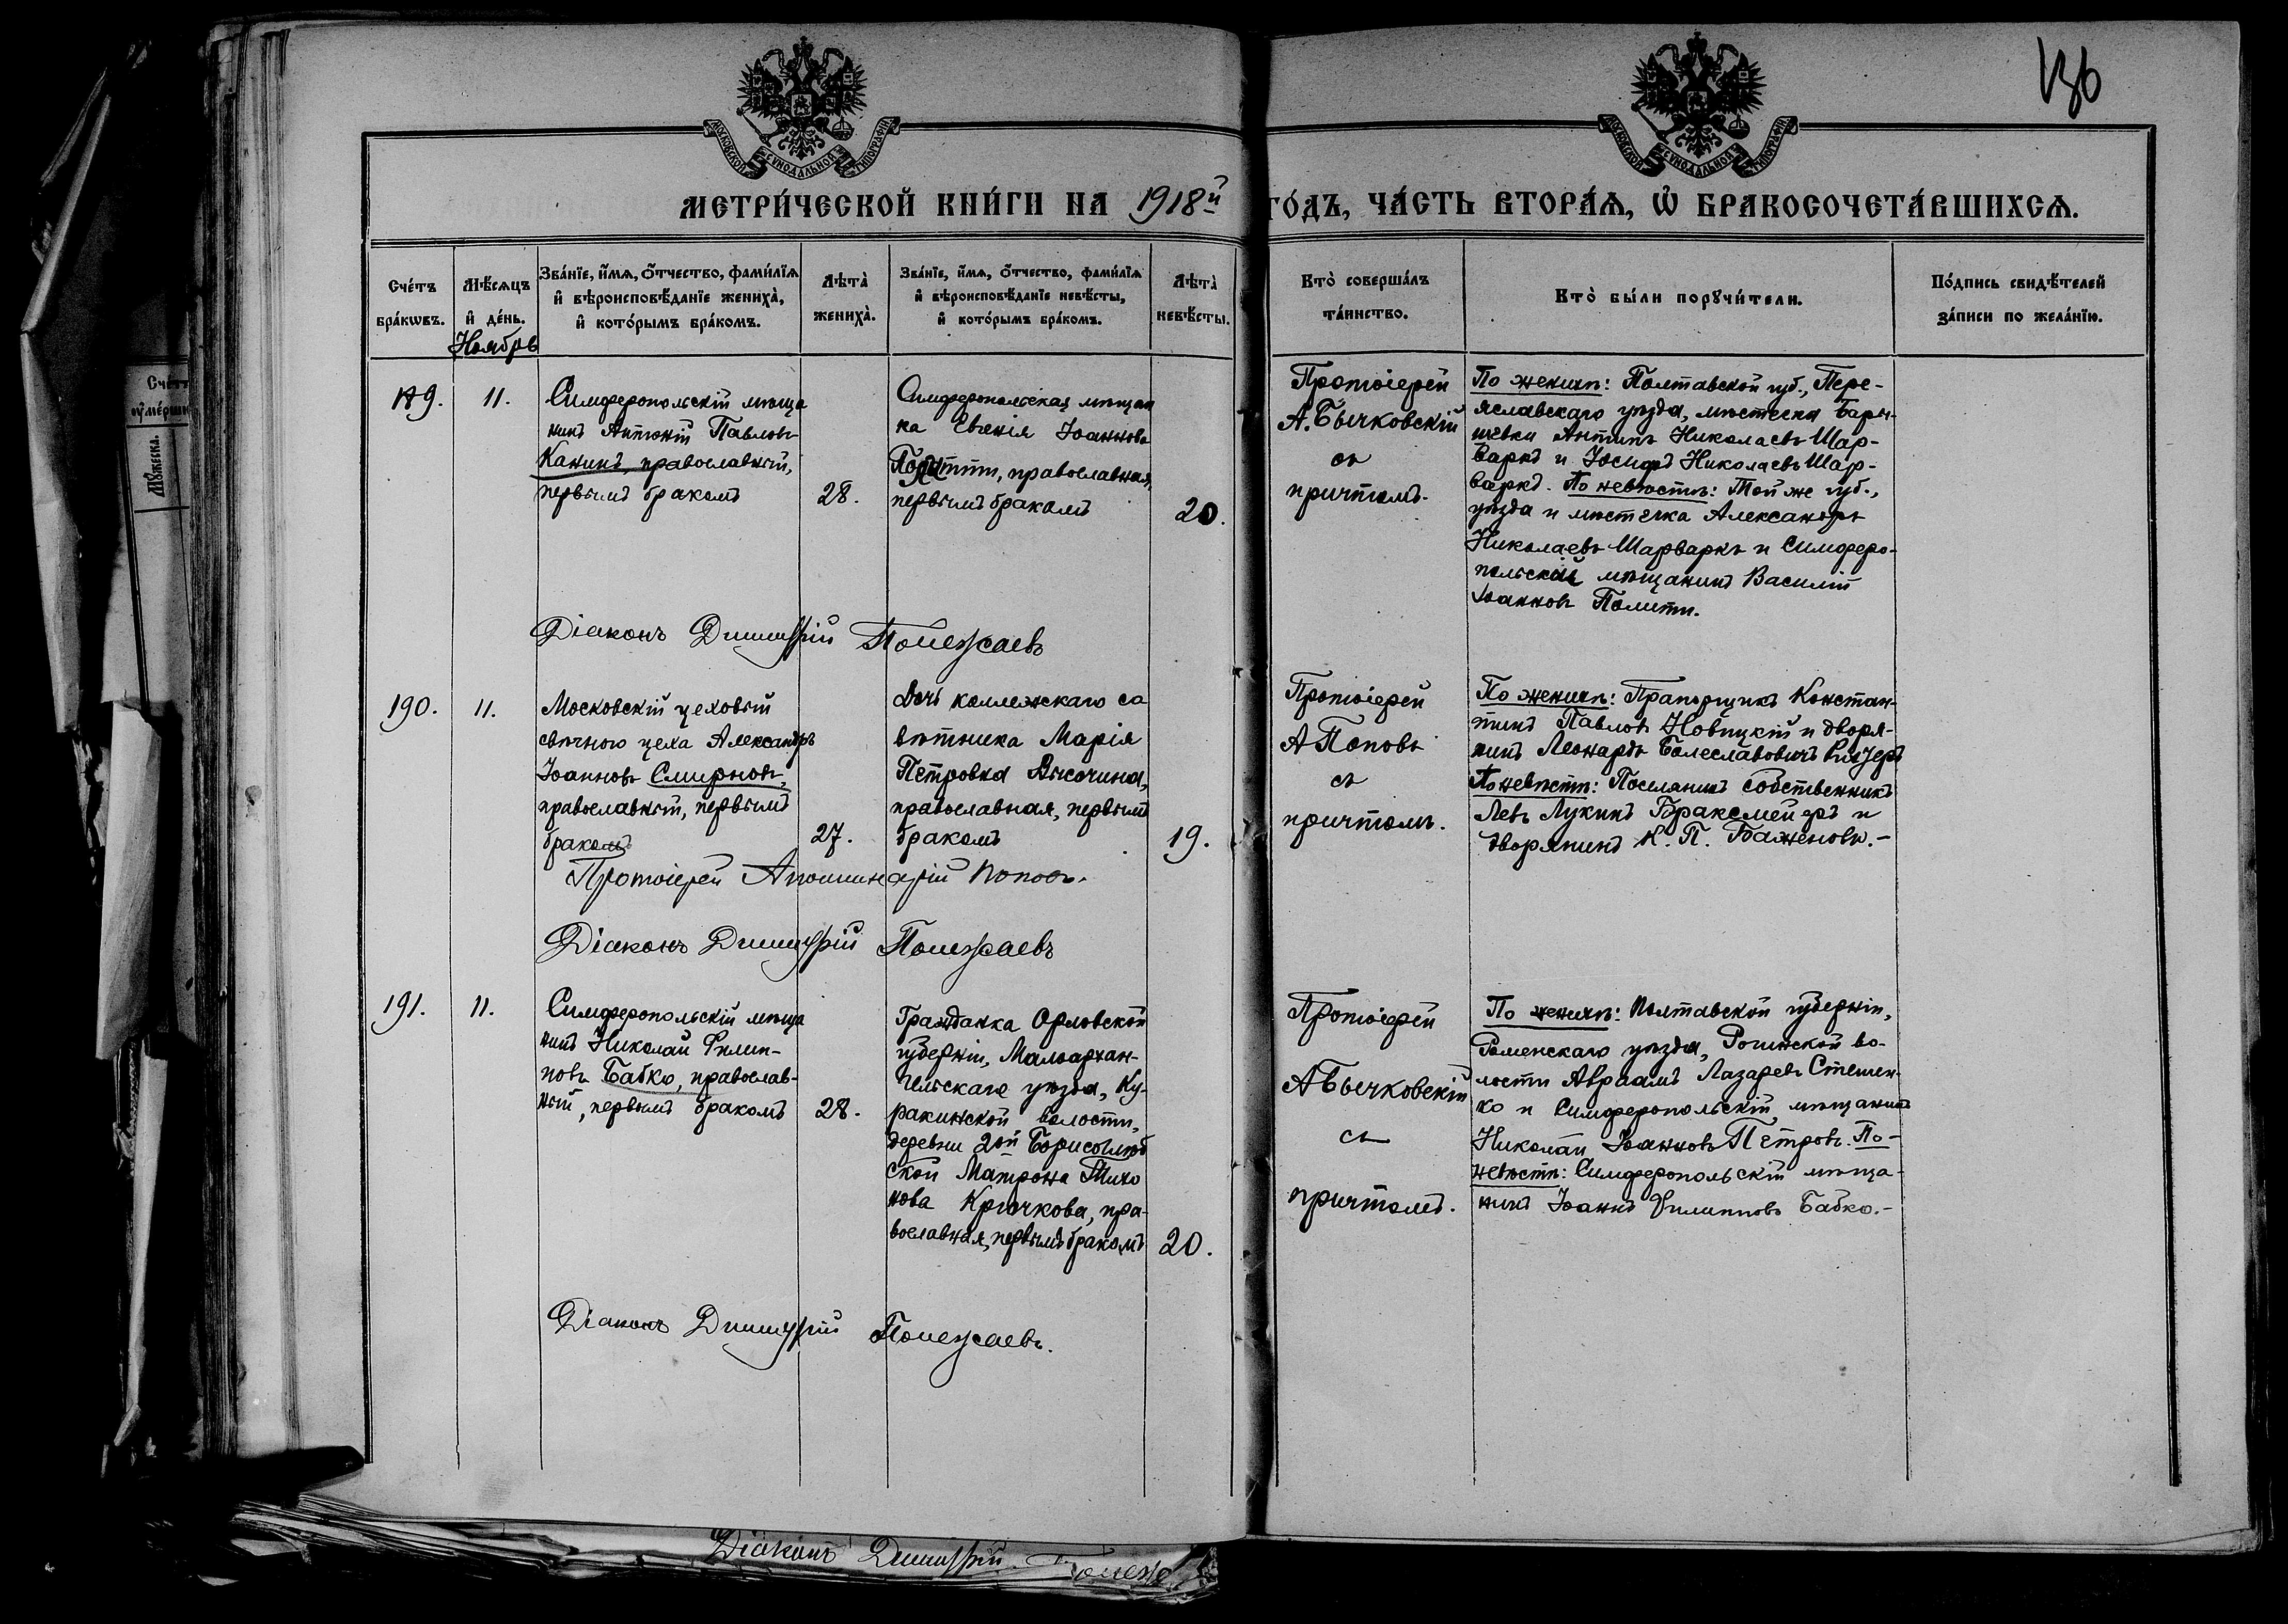 136
МОСКОВСКОЙ СѴНОДАЛЬНОЙ ТИПОГРАФІИ
МОСКОВСКОЙ СѴНОДАЛЬНОЙ ТИПОГРАФІИ
МЕТРИ́ЧЕСКОЙ КНИ́ГИ НА 1918й ГО́ДЪ, ЧА́СТЬ ВТОРА́Ѧ, Ѡ҆ БРАКОСОЧЕТА́ВШИХСѦ.
Сче́тъ
бра́кѡвъ.
Мѣ́сѧцъ
и҆ де́нь.
Ноябрь
Зва́нїе, и҆́мѧ, ѻ҆́тчество, фами́лїѧ
и҆ вѣроисповѣ́данїе жениха̀,
и҆ кото́рымъ бра́комъ.
Лѣта̀
жениха̀.
Зва́нїе, и҆́мѧ, ѻ҆́тчество, фами́лїѧ
и҆ вѣроисповѣ́данїе невѣ́сты,
и҆ кото́рымъ бра́комъ.
Лѣта̀
невѣ́сты.
Кто̀ соверша́лъ
та́инство.
Кто̀ бы́ли порꙋчи́тели.
По́дпись свидѣ́телей
за́писи по жела́нїю.
189.
11.
Симферопольскій мѣща
нинъ Антоній Павловъ
Канинъ, православный,
первымъ бракомъ
28.
Симферопольская мѣщан
ка Евгенія Іоаннова
Полити, православная,
первымъ бракомъ
20.
Протоіерей
А. Бычковскій
съ
причтомъ.
По женихѣ: Полтавской губ., Пере-
яславскаго уѣзда, мѣстечка Бары-
шевки Антипъ Николаевъ Шар-
варкъ и Іосифъ Николаевъ Шар-
варкъ. По невѣстѣ: Той же губ.,
уѣзда и мѣстечка Александръ
Николаевъ Шарваркъ и Симферо-
польскій мѣщанинъ Василій
Іоанновъ Полити.
Діаконъ Димитрій Полежаевъ
190.
11.
Московскій цеховый
свѣчного цеха Александръ
Іоанновъ Смирновъ,
православный, первымъ
бракомъ
27.
Дочь коллежскаго со
вѣтника Марія
Петровна Высочина,
православная, первымъ
бракомъ
19.
Протоіерей
А Поповъ
съ
причтомъ.
По женихѣ: Прапорщикъ Констан-
тинъ Павловъ Новицкій и дворя-
нинъ Леонардъ Болеславовичъ
По невѣстѣ: Поселянинъ собственникъ
Левъ Лукинъ Браксмейеръ и
дворянинъ К. П. Баженовъ.-
Протоіерей Аполлинарій Поповъ.
Діаконъ Димитрій Полежаевъ
191.
11.
Симферопольскій мѣща
нинъ Николай Филип-
повъ Бабко, православ-
ный, первымъ бракомъ
28.
Гражданка Орловской
губерніи, Малоархан-
гельскаго уѣзда, Ку-
ракинской волости,
деревни 2ой Борисоглѣб
ской Матрона Тихо
нова Крючкова, пра-
вославная, первымъ бракомъ
20.
Протоіерей
А Бычковскій
съ
причтомъ.
По женихѣ: Полтавской губерніи,
Роменскаго уѣзда, во-
лости Авраамъ Лазаревъ Стешен-
ко и Симферопольскій мѣщанинъ
Николай Іоанновъ Петровъ. По-
невѣстѣ: Симферопольскій мѣща-
нинъ Іоаннъ Филипповъ Бабко.-
Діаконъ Димитрій Полежаевъ.
Діаконъ Димитрій
Счетъ
Мꙋжеска.